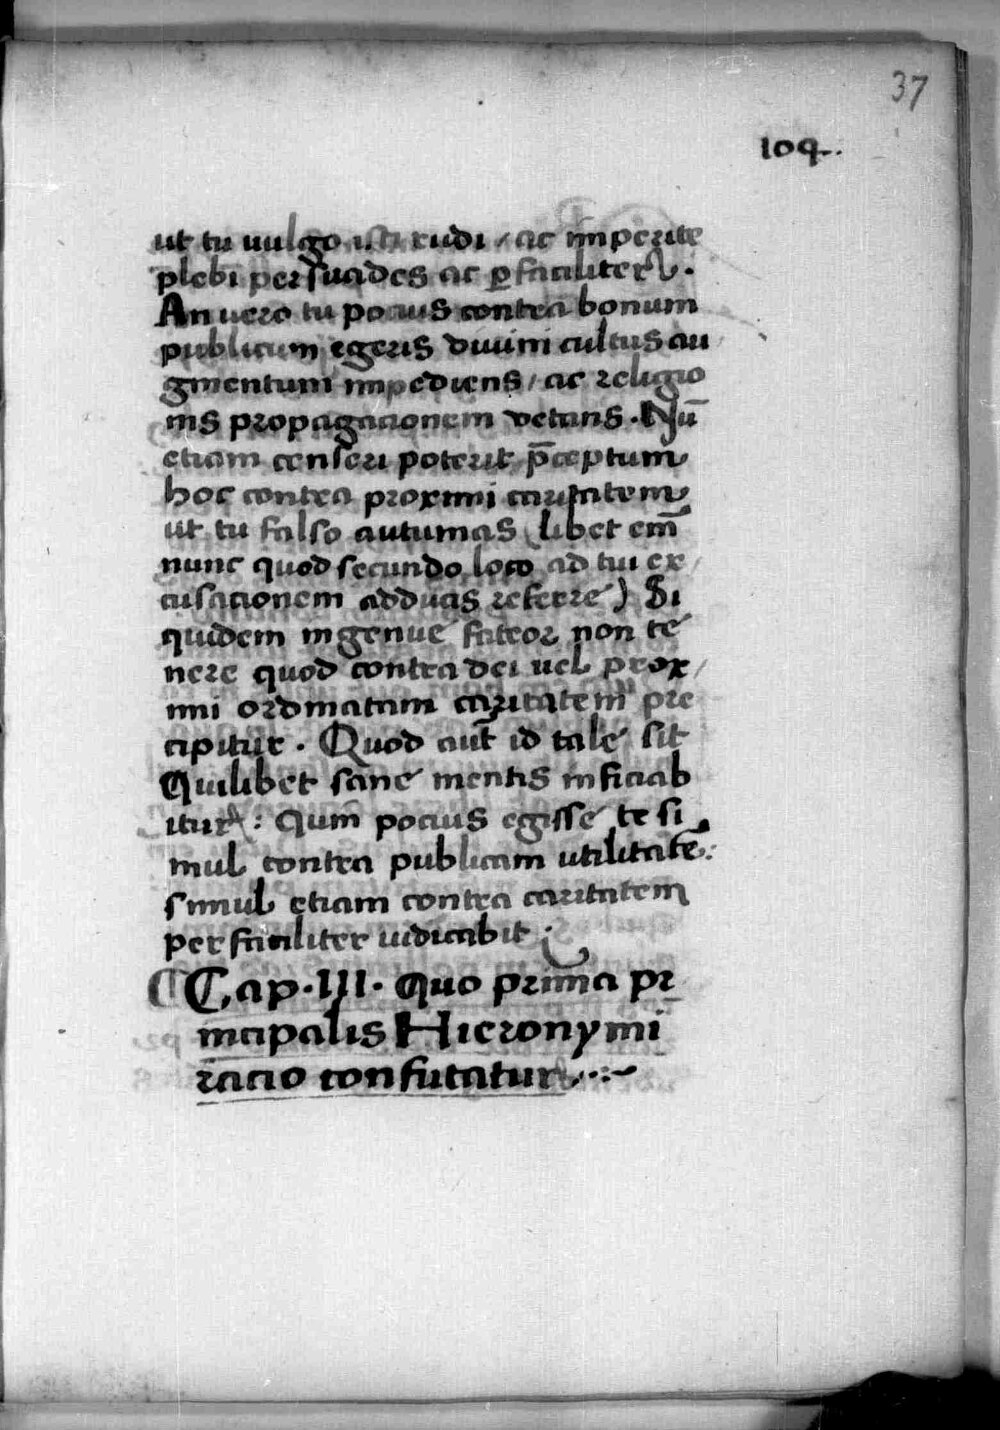 37
109.
ut tu vulgo isti rudi / ac imperite
plebi persuades ac ꝑfaciliter.
An vero tu pocius contra bonum
publicum egeris divini cultus au
gmentum impediens / ac religio
nis propagacionem vetans. Nū
etiam censeri poterit p̄ceptum
hoc contra proximi caritatem
ut tu falso autumas (libet em̄
nunc quod secundo loco ad tui ex
cusacionem adducis referre) Si
quidem ingenue fateor non te
nere quod contra dei vel prox
imi ordinatam caritatem pre
cipitur. Quod aut̄ id tale sit
Quilibet sane mentis inficiab
itur: Qum̄ pocius egisse te si
mul contra publicam utilitatē:
simul etiam contra caritatem
perfaciliter iudicabit:
Cap. III. Quo prima pr
incipalis Hieronymi
racio confutatur